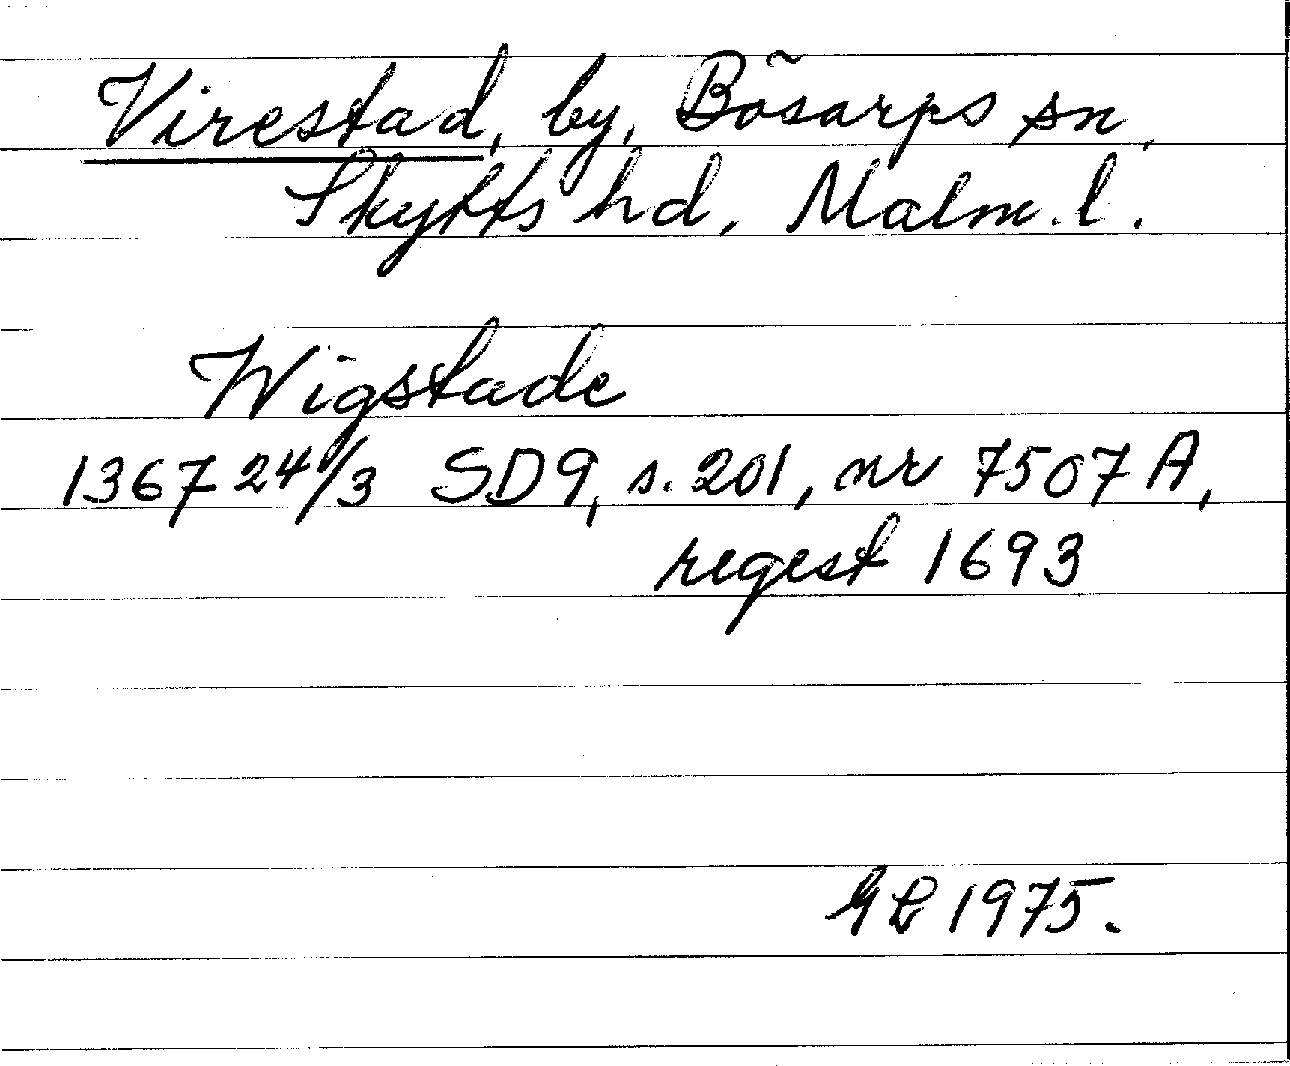 Virestad, by, Bösarps sn,
Skytts hd, Malm. l.
Wigstade
1367 24/3 SD9, s. 201, nr 7507 A,
regest 1693
GL 1975.